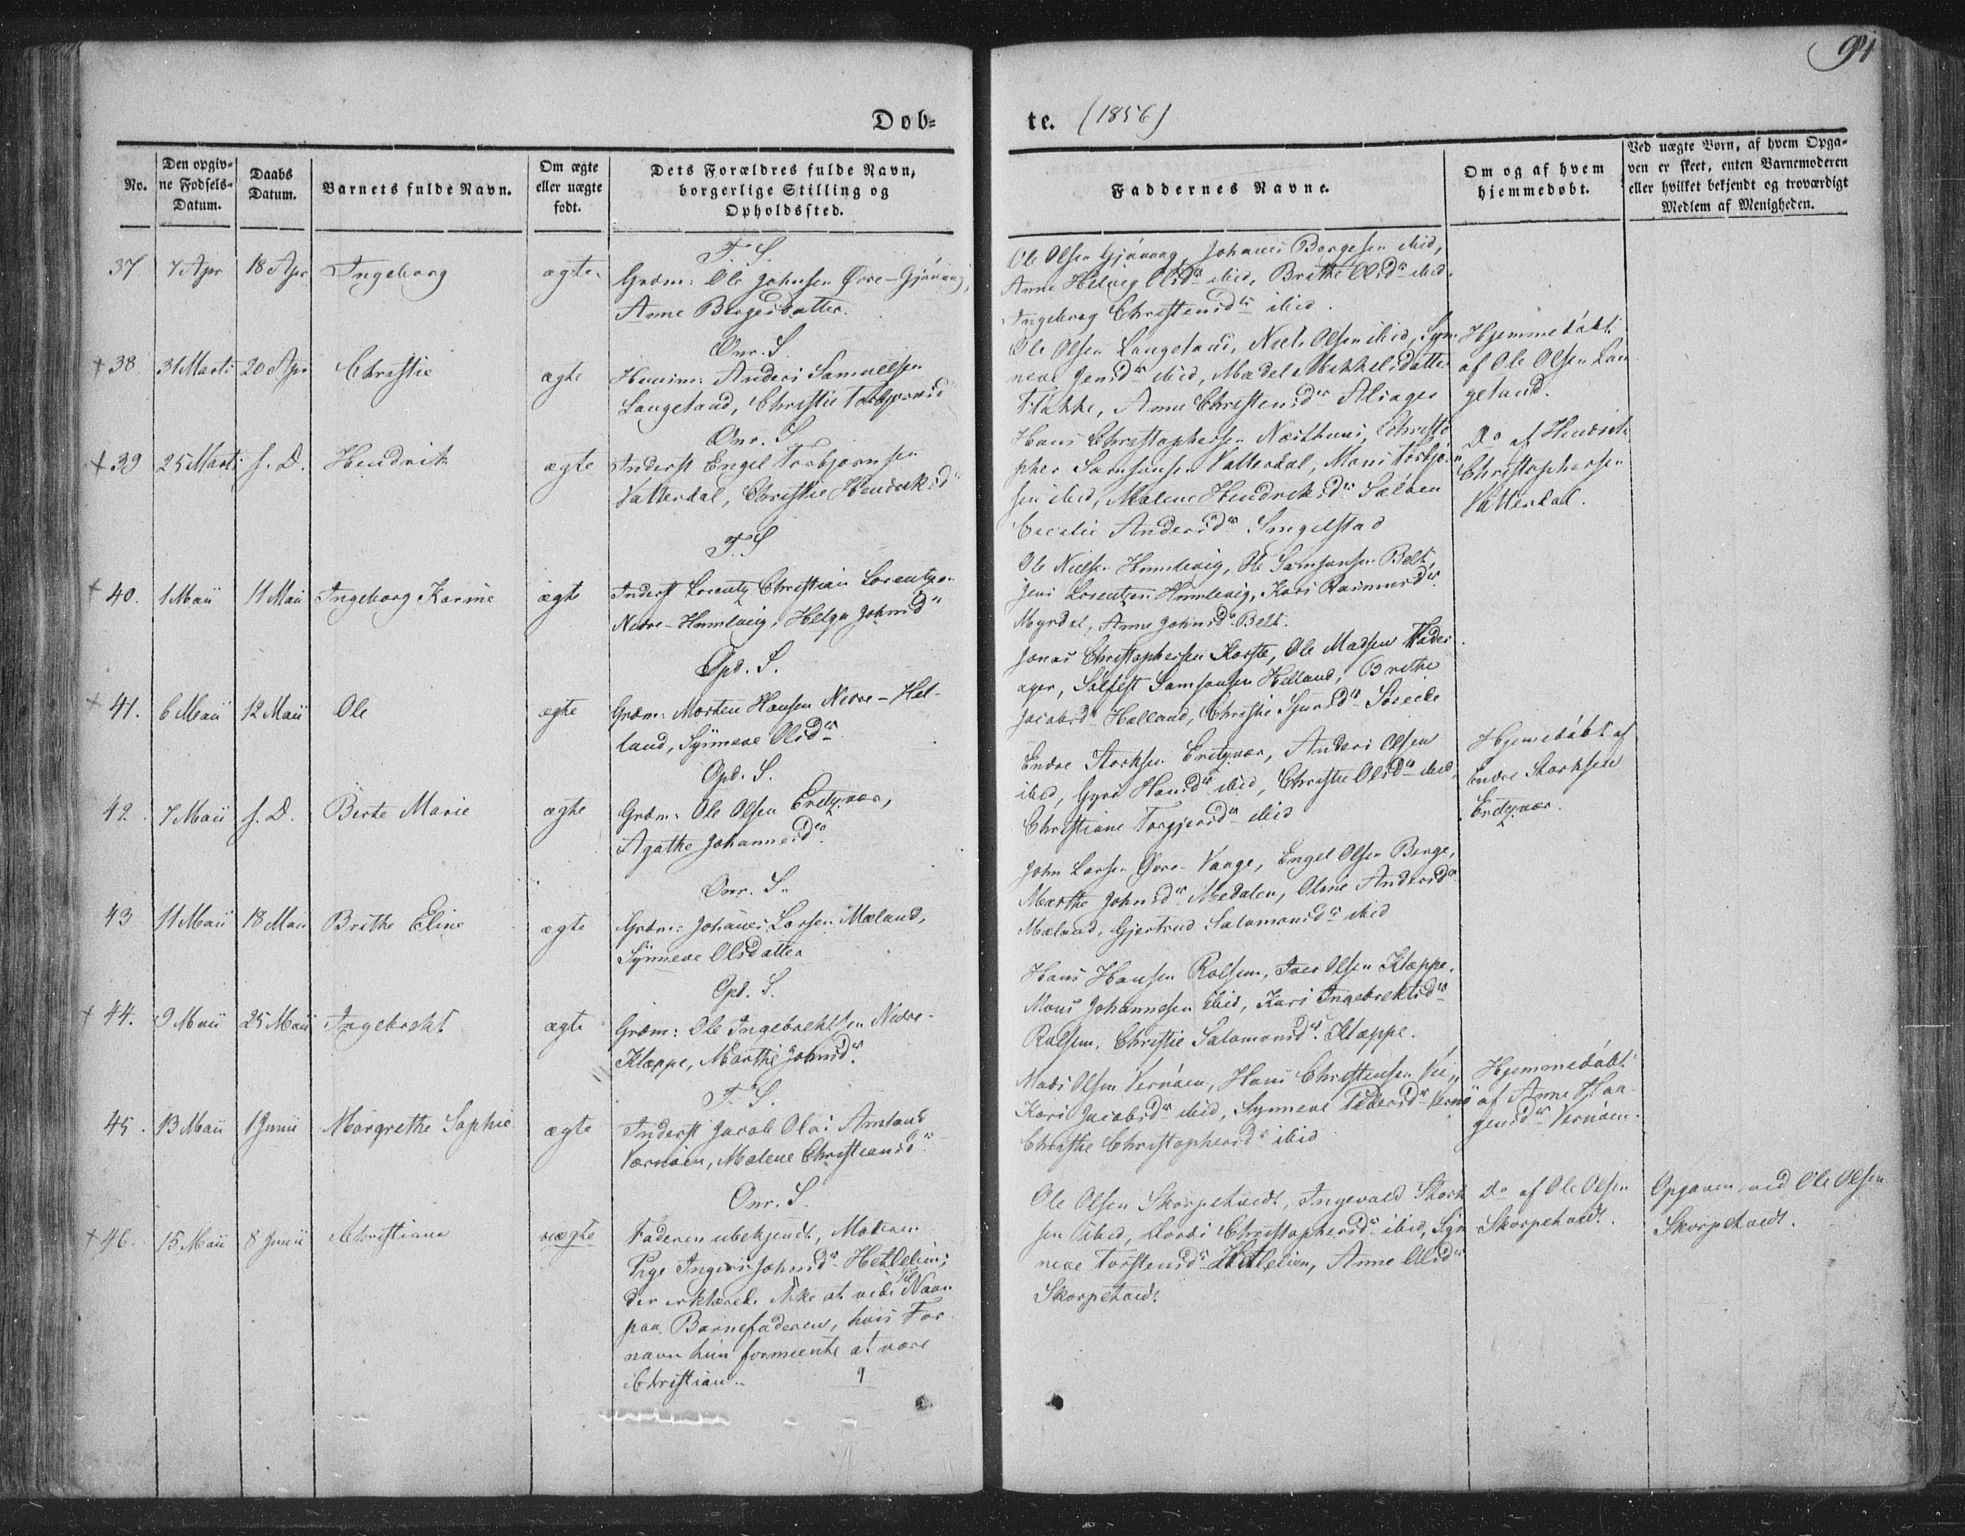 94
Døb-
te. (1856)
No.
Den opgiv-
ne Fødsels-
Datum.
Daabs
Datum.
Barnets fulde Navn.
Om ægte
eller uægte
født.
Dets Forældres fulde Navn,
borgerlige Stilling og
Opholdssted.
Faddernes Navne.
Om og af hvem
hjemmedøbt.
Ved uægte Børn, af hvem Opga-
ven er skeet, enten Barnemoderen
eller hvilket bekjendt og troværdigt
Medlem af Menigheden.
37 7 Apr 18 Apr Ingeborg ægte
F. S.
Grdm: Ole Johnsen Øvre-Gjøvaag,
Anne Børgesdatter.
Ole Olsen Gjøvaag, Johanes Børgesen ibid,
Anne Helvig Olsdr ibid, Brithe Olsdr ibid,
Ingeborg Christensdr ibid.
+ 38 31 Marts 20 Apr Christie ægte
Onr. S.
Huusm: Anders Samuelsen
Langeland, Christie Torbjørnsd
Ole Olsen Langeland, Niels Olsen ibid, Syn
neve Jensdr ibid, Madel Mikkelsdatter
Flakke, Anne Christensdr Alsager
Hjemmedøbt
af Ole Olsen Lan
geland.
+ 39 25 Marts s. D. Hendrik ægte
Onr. S
Inderst Engel Torbjørnsen
Vatterdal, Christie Hendriksdr
Hans Christophersen Næsthuus, Christo
pher Samsonsen Vatterdal, Mons Torbjørn
sen ibid, Malene Hendriksdr Sæløen
Cecelie Andersdr Singelstad
Do af Hendrik
Christophersen
Vatterdal.
+ 40. 1 Maii 11 Maii Ingeborg Karine ægte
F. S
Inderst Lorentz Christian Lorentzen
Nedre-Humlevig, Helga Johnsdr
Ole Nielsen Humlevig, Ole Samsonsen Belt,
Jens Lorentzen Humlevig, Kari Rasmusdr
Myrdal, Anne Johnsd. Belt.
+ 41. 6 Maii 12 Maii Ole ægte
Opd. S.
Grdm: Morten Hansen Nedre-Hel-
land, Synneve Olsdr
Jonas Christophersen Koste, Ole Madsen
ager, Salfest Samsonsen Helland, Brithe
Jacobsdr Helland, Christie Sjursdr
42. 7 Maii s. D. Berte Marie ægte
Opd. S.
Grdm: Ole Olsen Endtzvær,
Agathe Johannesdr.
Endre Storksen Endtzvær, Anders Olsen
ibid, Gyri Hansdr ibid, Christie Olsdr ibid,
Christiane Torgjersdr ibid
Hjemmedøbt af
Endre Storksen
Endtzvær.
43. 11 Maii 18 Maii Brithe Eline ægte
Onr. S.
Grdm: Johanes Larsen Mæland,
Synneve Olsdatter
John Larsen Øvre-Vaage, Engel Olsen Berge,
Marthe Johnsdr Medalen, Oline Andersdr
Mæland, Gjertrud Salamonsdr ibid
+ 44. 9 Maii 25 Maii Ingebrekt ægte
Opd. S.
Grdm: Ole Ingebrektsen Nedre-
Klæppe, Marthe Johnsdr.
Hans Hansen Rolsem, Iver Olsen Klæppe,
Mons Johannesen ibid, Kari Ingebrektsdr
Rolsem, Christie Salamonsdr. Klæppe.
45. 13 Maii 1 Junii Margrethe Sophie ægte
F. S.
Inderst Jacob Olai Amland
Vernøen, Malene Christiansdr
Mads Olsen Vernøen, Hans Christensen
Kari Jacobsdr ibid, Synneve Pedersdr
Christie Christophersdr ibid
Hjemmedøbt
af Anne Haa-
gensdr Vernøen.
+ 46. 15 Maii 8 Junii Christiane uægte
Onr. S.
Faderen ubekjendt, Moderen
Pige Inger Johnsdr Hetlelien;
der erklærede ikke at vide Navn
paa Barnefaderen, hvis For
navn hun formeente at være
Christian. 9
Ole Olsen Skorpetvedt, Ingevald Stork
sen ibid, Dorthe Christophersdr ibid, Syn
neve Torstensdr Hetlelien, Anne Olsdr
Skorpetvedt.
Do af Ole Olsen
Skorpetvedt.
Opgaven ved Ole Olsen
Skorpetvedt.